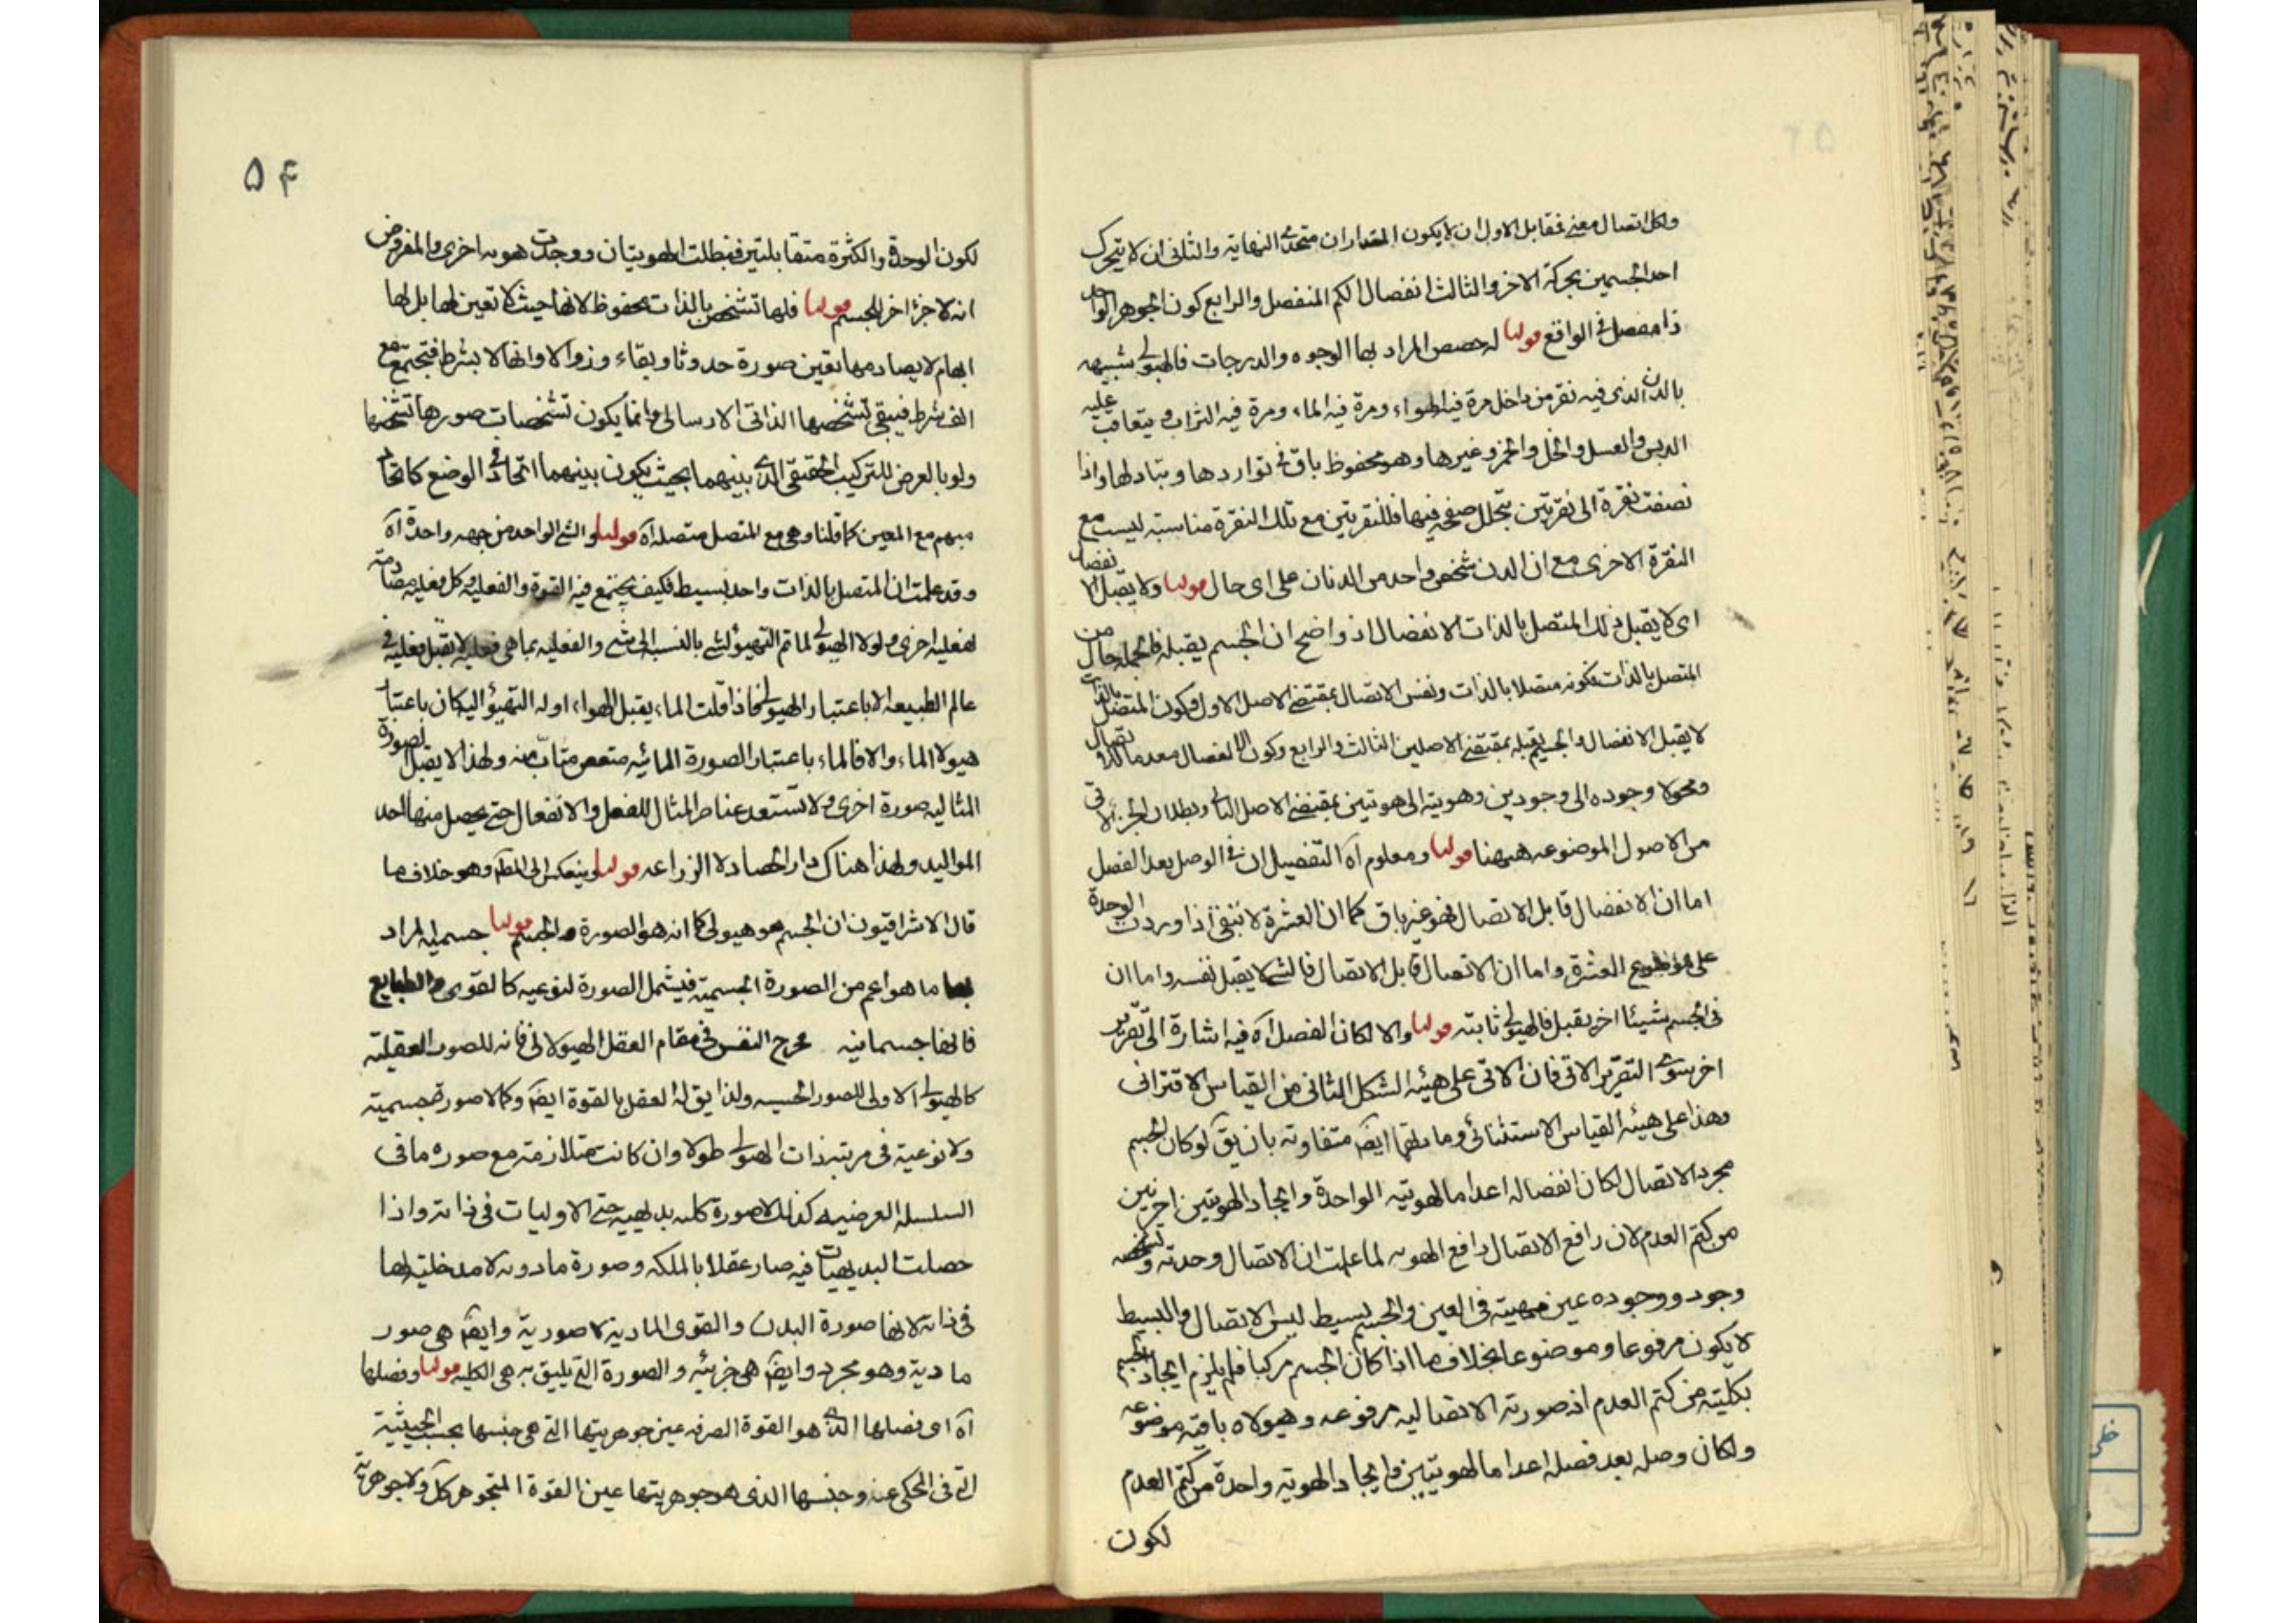 ولكل اتصال معنى فمقابل الاول ان لا يكون المقداران متحدى النهاية والثانى ان لا يتحرك
احد الجسمين بحركة الاخر والثالث انفصال الكم المنفصل والرابع كون الجوهر الواحد
ذا مفصل فى الواقع قولنا له حصص المراد بها الوجوه والدرجات فالهيولى شبيهه
بالدن الذى فيه نقر من داخل مرة فيه الهواء ومرة فيه الماء ومرة فيه التراب ويتعاقب عليه
الدبس والعسل والخل والخمر وغيرها وهو محفوظ باق فى تواردها وتبادلها واذا
نصفت نقرة الى نقرتين بتخلل صفحه فيها فللنقرتين مع تلك النقرة مناسبته ليست مع
النقرة الاخرى مع ان الدن شخص واحد من الدنان على اى حال قولنا ولا يقبل انفصال
اى لا يقبل ذلك المتصل بالذات الانفصال اذ واضح ان الجسم يقبله فالجمله حال من
المتصل بالذات بكونه متصلا بالذات ونفس الاتصال بمقتضى الاصل الاول وكون المتصل بالذات
لا يقبل الانفصال والجسم يقبله بمقتضى الاصلين الثالث والرابع وكون الانفصال معدما للاتصال
ومحولا وجوده الى وجودين وهويته الى هويتين بمقتضى الاصل الثانى وبطلان الجزء لاتى
من الاصول الموضوعه ههنا قولنا ومعلوم آه التفصيل ان فى الوصل بعد الفصل
اما ان الانفصال قابل الاتصال فهو غير باق كما ان العشرة لا تبقى اذا وردت الوحدة
على موضوع العشرة واما ان الاتصال قابل الاتصال فالشى لا يقبل نفسه واما ان
فى الجسم شيئا اخر يقبل فالهيولى ثابته قولنا والا لكان الفصل آه فيه اشارة الى تقرير
اخر سوى التقرير الاتى فان الاتى على هيئه الشكل الثانى من القياس الاقترانى
وهذا على هيئه القياس الاستثنائى ومادتهما ايضا متفاوته بان يق لو كان الجسم
مجرد الاتصال لكان انفصاله اعداما لهويته الواحدة وايجادا لهويتين اخريين
من كتم العدم لان رافع الاتصال رافع الهويه لما علمت ان الاتصال وحدته وتشخصه
وجود ووجوده عين مهيته فى العين والجسم بسيط ليس الا اتصال والبسيط
لا يكون مرفوعا وموضوعا بخلاف ما اذا كان الجسم مركبا فلم يلزم ايجاد الجسم
بكليته من كتم العدم اذ صورته الاتصاليه مرفوعه وهيولاه باقيه موضوعه
ولكان وصله بعد فصله اعداما لهويتين وايجادا لهويته واحدة من كتم العدم
لكون
۵۴
لكون الوحدة والكثرة متقابلتين فبطلت الهويتان ووجدت هويه اخرى والمفروض
انه لا جزء اخر للجسم قولنا فلها تشخص بالذات محفوظ لانها حيث لا تعين لها بل لها
ابهام لا يصادمها تعين صورة حدوثا وبقاء وزوالا وانها لا بشرط فتجتمع مع
الف شرط فيبقى تشخصها الذاتى الارسالى وانما يكون تشخصات صورها تشخصها
ولو بالعرض للتركيب الحقيقى الذى بينهما بحيث يكون بينهما اتحاد فى الوضع كاتحاد
مبهم مع المعين كما قلنا وهى مع المتصل متصله آه قولنا والشى الواحد من جهه واحدة آه
وقد علمت ان المتصل بالذات واحد بسيط فكيف يجتمع فيه القوة والفعليه وكل فعليه مصادمة
لفعليه اخرى ولولا الهيولى لما تم التهيؤ لشى بالنسبه الى شى والفعليه بما هى فعليه لا تقبل فعليه فى
عالم الطبيعه الا باعتبار الهيولى فاذا قلت الماء يقبل الهواء او له التهيؤ اليه كان باعتبار
هيولا الماء والا فالماء باعتبار الصورة المائيه متعص متاب منه ولهذا لا يقبل لصورة
المثاليه صورة اخرى ولا تستعد عناصر المثال للفعل والانفعال حتى يحصل منها احد
المواليد ولهذا هناك دار الحصاد لا الزراعه قولنا وينعكس الى النظم وهو خلاف ما
قال الاشراقيون ان الجسم هو هيولى كما انه هو الصورة والجسم قولنا جسميه المراد
بها ما هو اعم من الصورة الجسمية فيشمل الصورة لنوعيه كالقوى والطبايع
فانها جسمانيه مخرج النفس فى مقام العقل الهيولانى فانه للصور العقليه
كالهيولى الاولى للصور الحسيه ولذا يق له العقل بالقوة ايضا وكما لا صورة جسمية
ولا نوعية فى مرتبه ذات الهيولى طولا وان كانت متلازمة مع صوره ما فى
السلسله العرضيه كذلك لا صورة كليه بديهيه حتى الاوليات فى ذاته واذا
حصلت البديهيات فيه صار عقلا بالملكه وصورة مادونه لا مدخليه لها
فى ذاته لانها صورة البدن والقوى الماديه لا صورية وايضا هى صور
مادية وهو مجرد وايضا هى جزئيه والصورة التى يليق به هى الكليه قولنا وفصلها
آه اى فصلها الذى هو القوة الصرفه عين جوهريتها التى هى جنسها بحسب الحيثية
التى فى المحكى عنه وجنسها الذى هو جوهريتها عين القوة المتجوهر كل ولا جوهرية